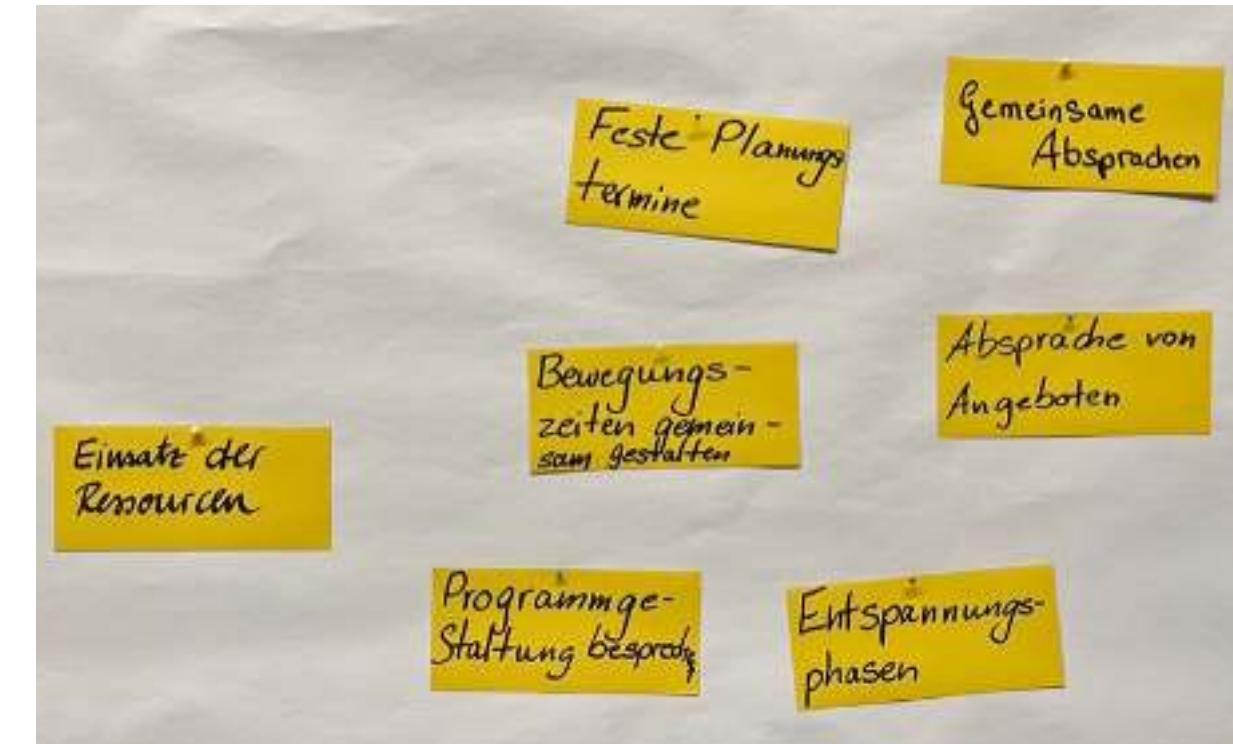 Feste Planungs
termine
Gemeinsame
Absprachen
Bewegungs-
zeiten gemein-
sam gestalten
Absprache von
Angeboten
Einsatz der
Ressourcen
Programmge-
staltung
Entspannungs-
phasen